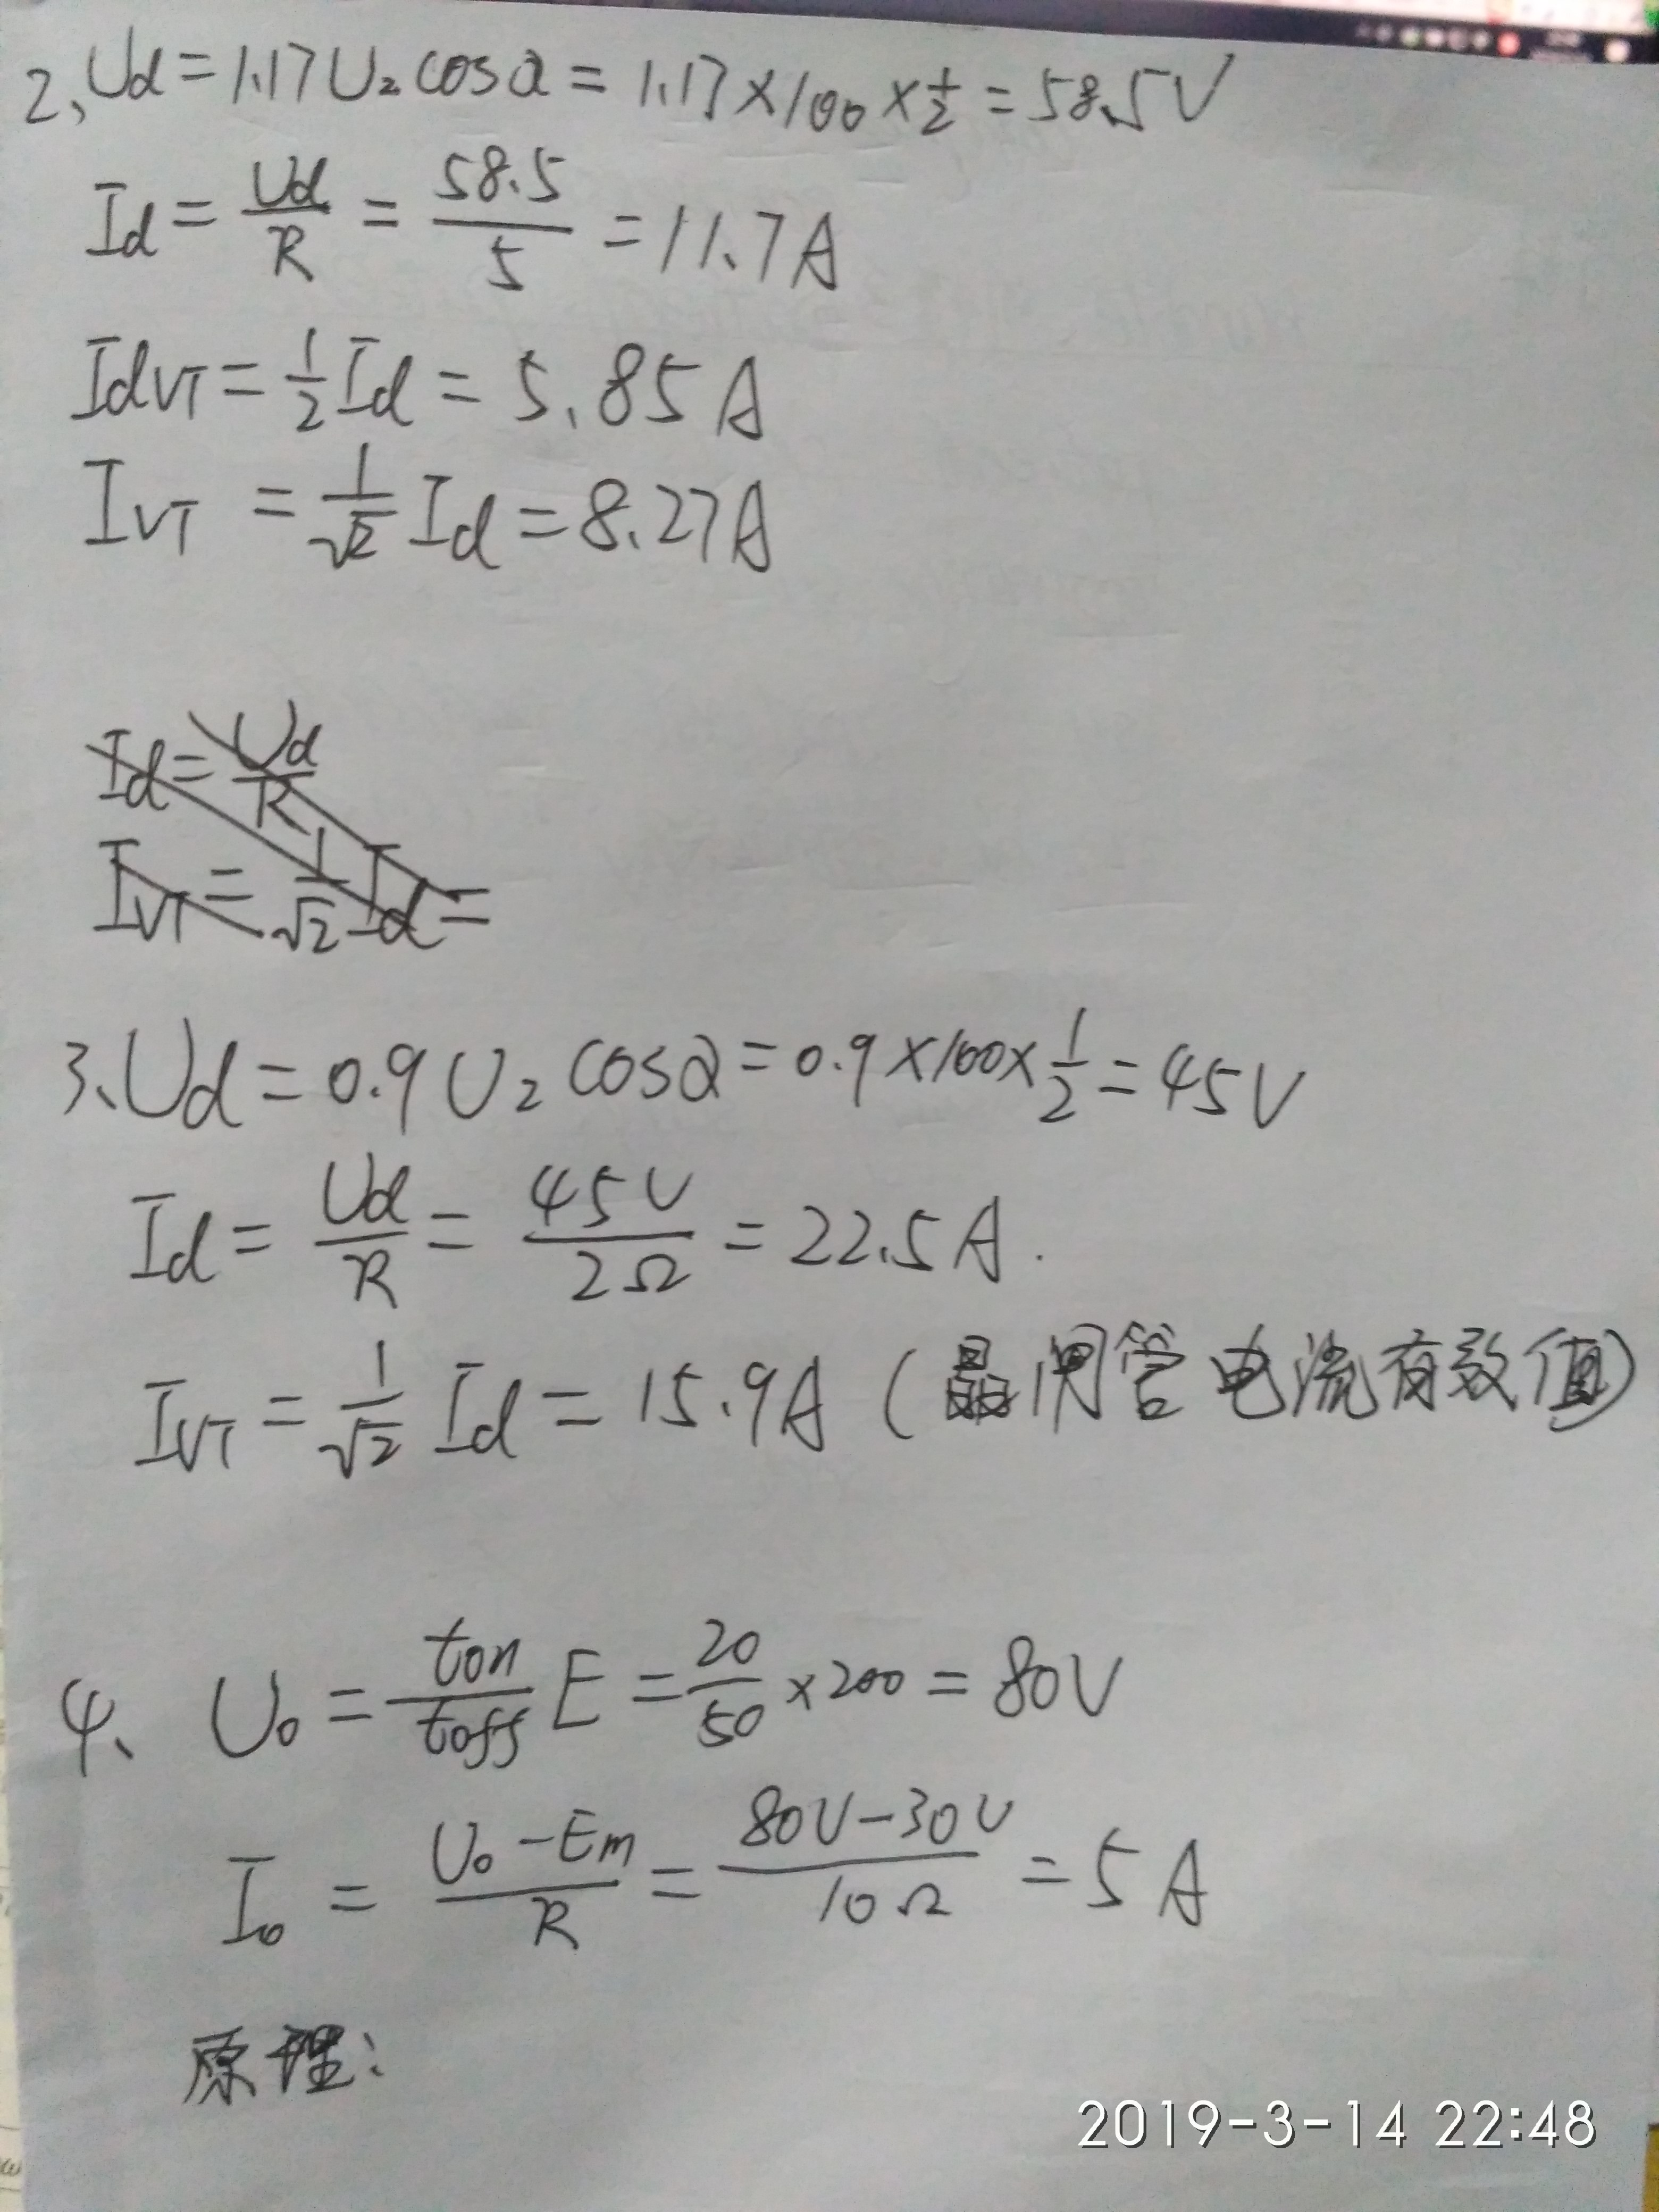 2、Ud=1.17U₂cosα=1.17×100×1/2=58.5V
Id=Ud/R=58.5/5=11.7A
IdVT=1/2Id=5.85A
IVT=1/√2Id=8.27A
Id=Ud/R
IVT=1/√2Id=
3、Ud=0.9U₂cosα=0.9×100×1/2=45V
Id=Ud/R=45V/2Ω=22.5A.
IVT=1/√2Id=15.9A(晶闸管电流有效值)
4、U₀=ton/toffE=20/50×200=80V
I₀=U₀-Em/R=80V-30V/10Ω=5A
原理:
2019-3-14 22:48